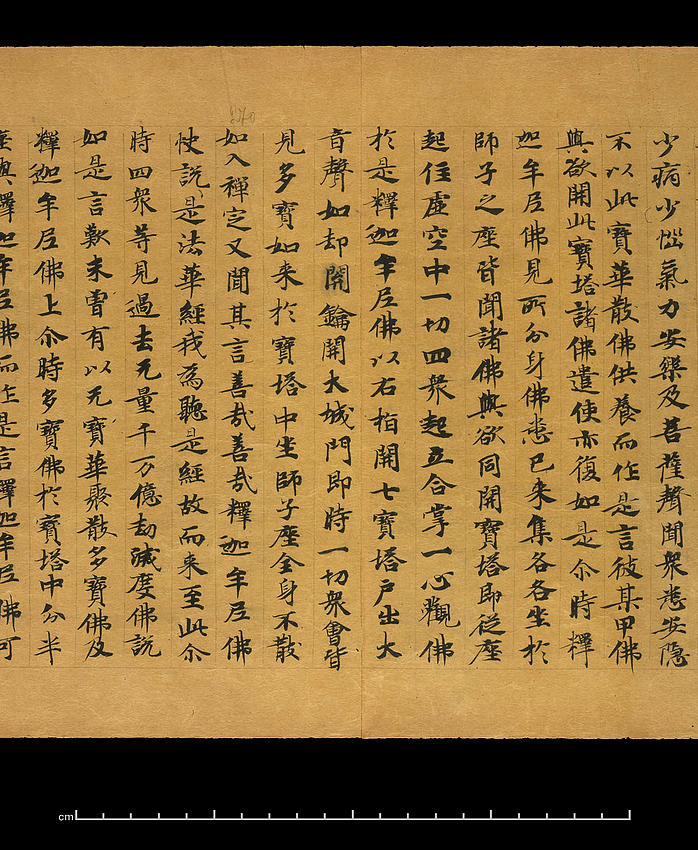 少病少惱氣力安樂及菩薩聲聞衆悉安隱
不以此寶華散佛供養而作是言彼某甲佛
與欲開此寶塔諸佛遣使亦復如是尒時釋
迦牟尼佛見所分身佛悉已来集各各坐於
師子之座皆聞諸佛與欲同開寶塔即從座
起住虛空中一切四衆起立合掌一心觀佛
於是釋迦牟尼佛以右指開七寶塔戶出大
音聲如却關鑰開大城門即時一切衆會皆
見多寶如来於寶塔中坐師子座全身不散
如入禪定又聞其言善哉善哉釋迦牟尼佛
快說是法華經我為聽是經故而来至此尒
時四衆等見過去无量千万億劫滅度佛說
如是言歎未曽有以天寶華聚散多寶佛及
釋迦牟尼佛上尒時多寶佛於寶塔中分半
座與釋迦牟尼佛而作是言釋迦牟尼佛可
cm